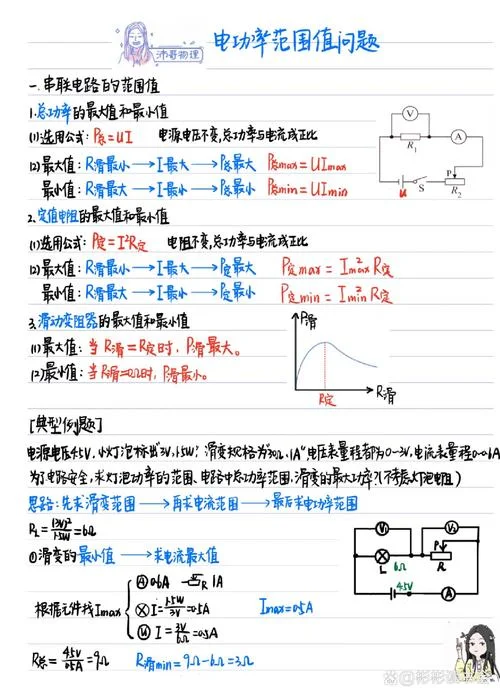 沛哥物理
电功率范围值问题
一.串联电路的范围值
1.总功率的最大值和最小值
(1)选用公式:P总=UI 电源电压不变,总功率与电流成正比
(2)最大值:R滑最小→I最大→P总最大 P总max=UImax
最小值:R滑最大→I最小→P总最小 P总min=UImin
V
R1
A
U
S
P
R2
2.定值电阻的最大值和最小值
(1)选用公式:P定=I²R定 电阻不变,总功率与电流成正比
(2)最大值:R滑最小→I最大→P定最大 P定max=I²maxR定
最小值:R滑最大→I最小→P定最小 P定min=I²minR定
3.滑动变阻器的最大值和最小值
(1)最大值:当R滑=R定时,P滑最大。
(2)最小值:当R滑=0Ω时,P滑最小。
P滑
R定
R滑
[典型例题]
电源电压4.5V.小灯泡标出"3V,1.5W".滑变规格为"30Ω,1A"电压表量程都为0-3V,电流表量程0-0.6A
为了电路安全,求灯泡功率的范围、电路中总功率范围,滑变的最大功率?(不考虑灯泡电阻)
思路:先求滑变范围→再求电流范围→最后求电功率范围
RL=(3V)²/1.5W=6Ω
①滑变的最小值→求电流最大值
根据元件找Imax
A 0.6A R 1A
I=1.5W/3V=0.5A
V I=3V/6Ω=0.5A
Imax=0.5A
R总=4.5V/0.5A=9Ω R滑min=9Ω-6Ω=3Ω
V1
V2
L
6Ω
P
R
4.5V
A